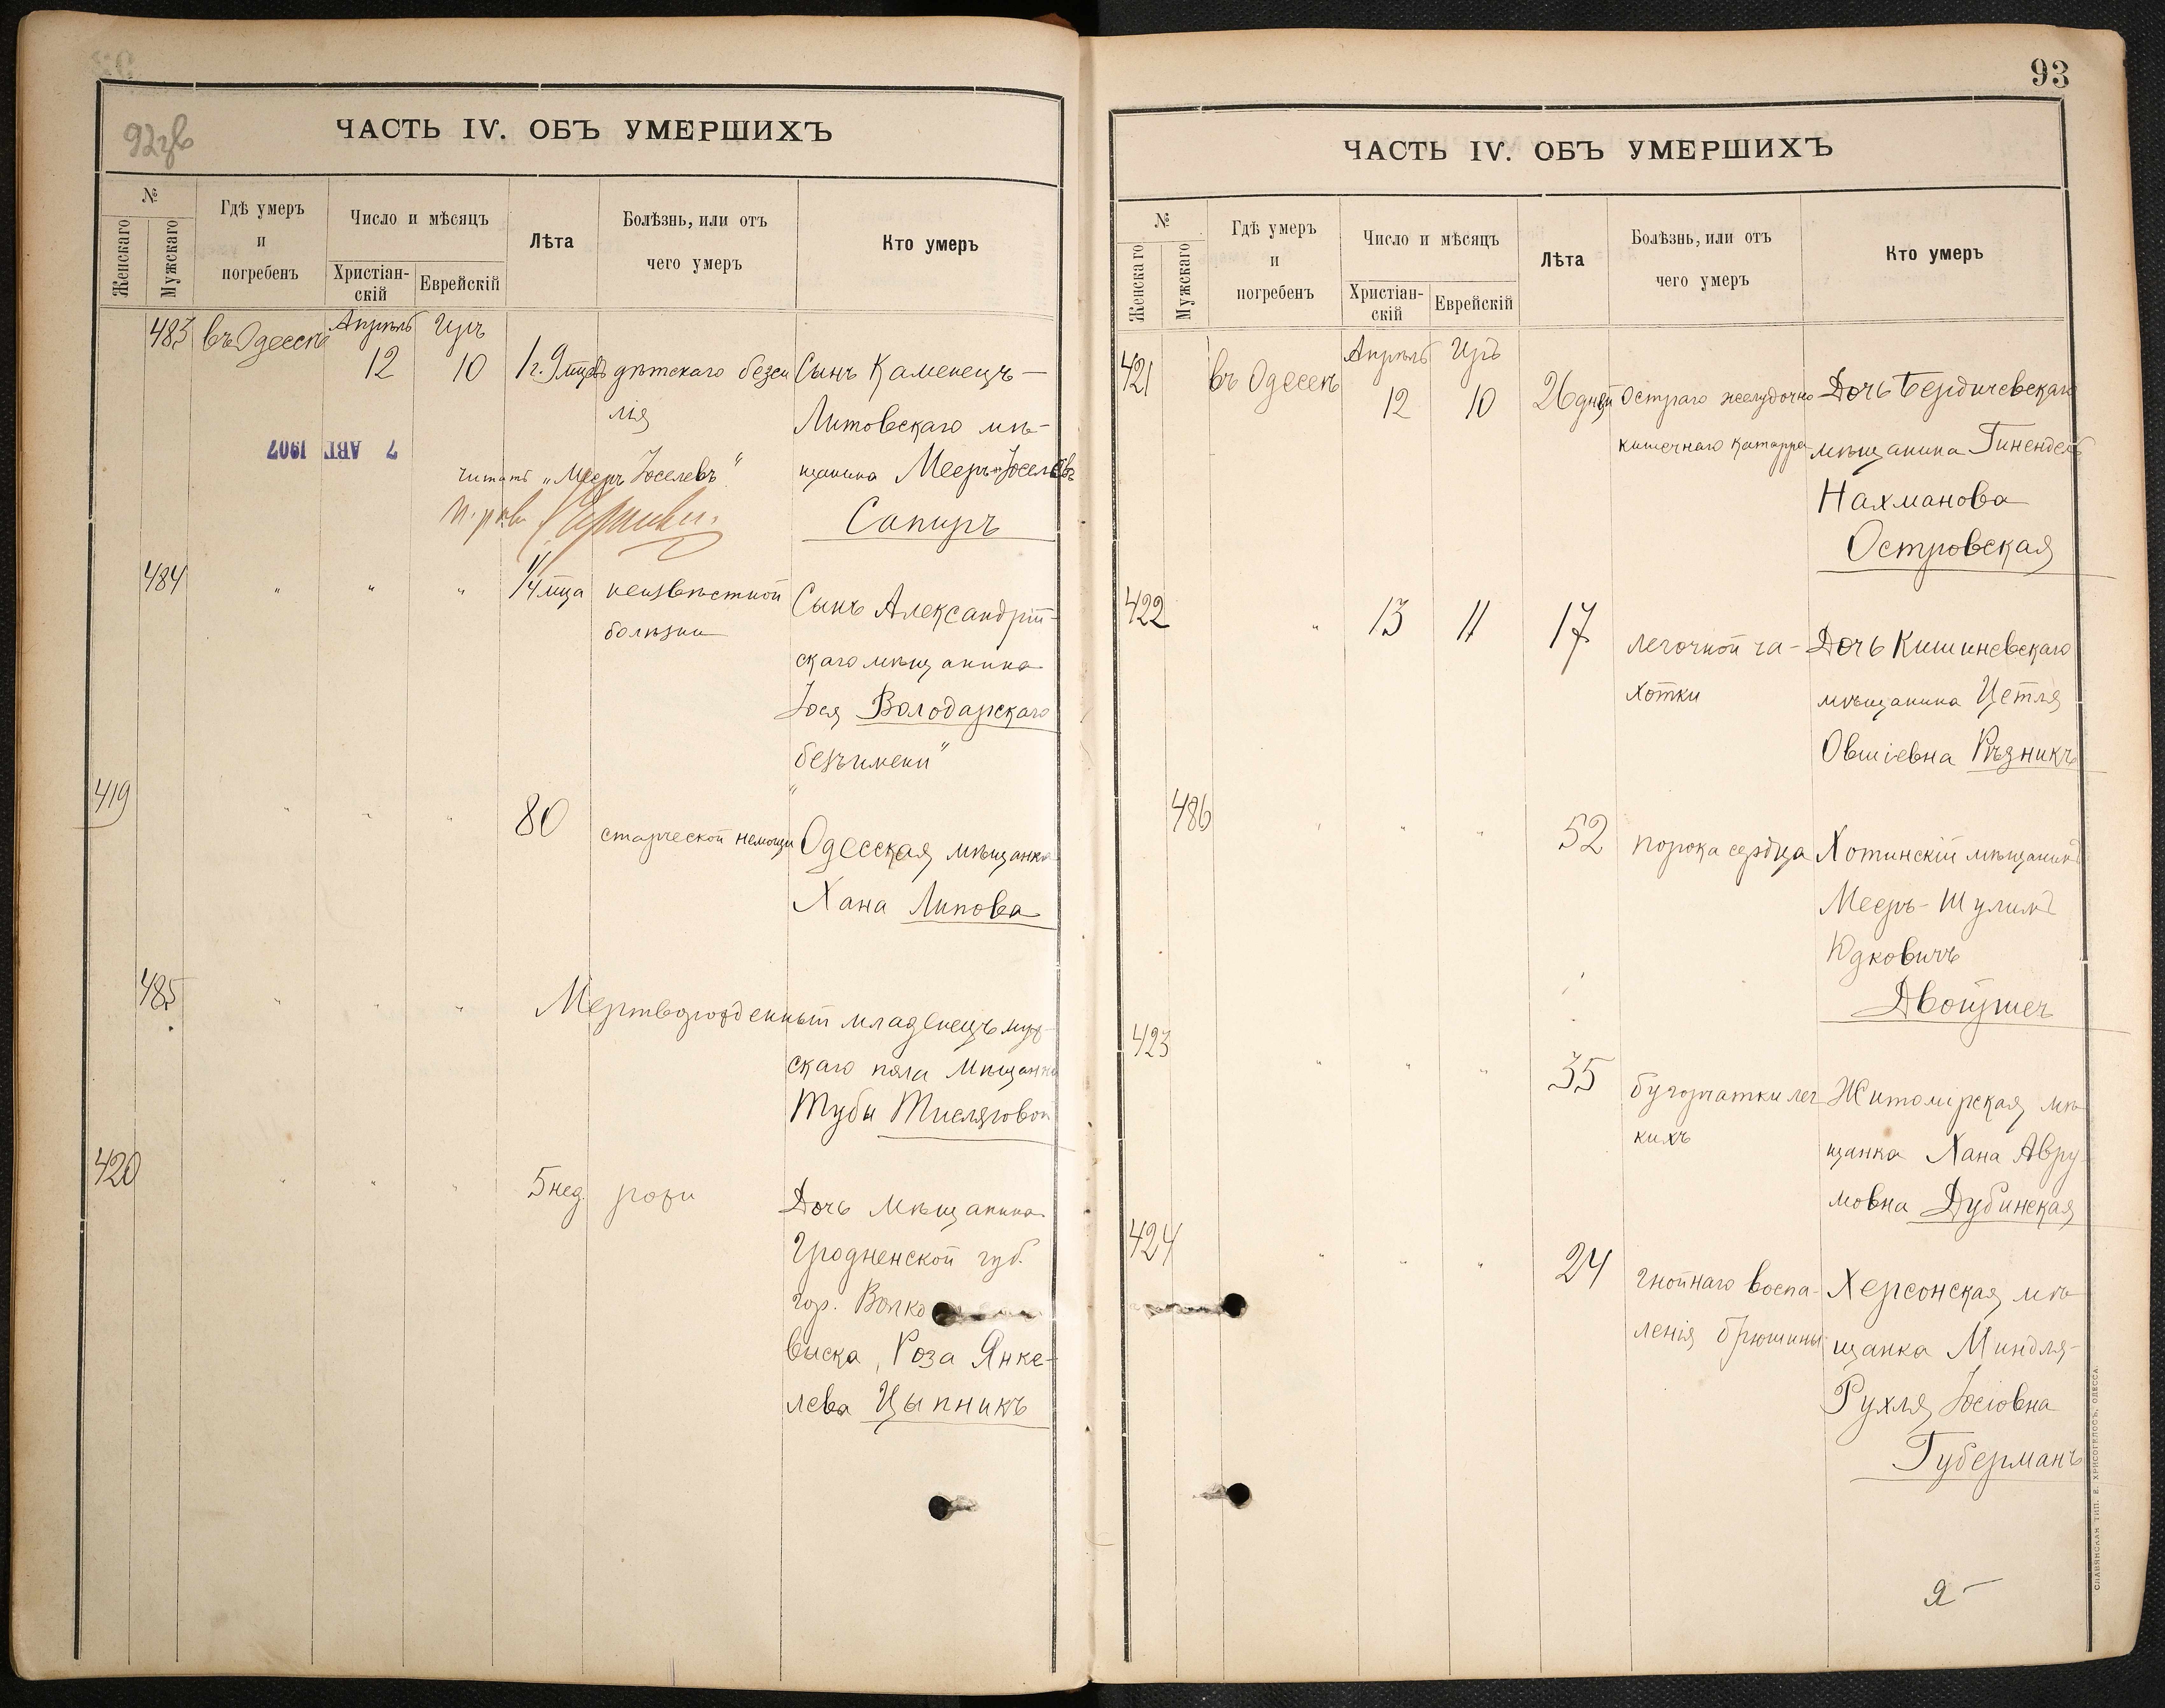 92зв
ЧАСТЬ IV. ОБЪ УМЕРШИХЪ
№
Женскаго
Мужскаго
Гдѣ умеръ
и
погребенъ
Число и мѣсяцъ
Христіан-
скій
Еврейскій
Лѣта
Болѣзнь, или отъ
чего умеръ
Кто умеръ
483 въ Одессѣ Апрѣль 12 Иръ 10 1 г. 9 мцевъ дѣтскаго безси
лія
Сынъ Каменецъ-
Литовскаго мѣ-
щанина Мееръ Іоселевъ
Сапиръ
7 АВГ. 1907
читать „Мееръ Іоселевъ"
484 " " " 1/4 мца неизвѣстной
болѣзни
Сынъ Александрій-
скаго мѣщанина
Іося Володарскаго
„безъ имени"
419 " " " 80 старческой немощи
Одесская мѣщанка
Хана Липова
485 " " " Мертворожденный младенецъ муж-
скаго пола мѣщанки
Тубы
420 " " " 5 нед. рожи
Дочь мѣщанина
Гродненской губ.
гор. Волко
выска, Роза Янке-
лева Цыпникъ
93
ЧАСТЬ IV. ОБЪ УМЕРШИХЪ
№
Женскаго
Мужскаго
Гдѣ умеръ
и
погребенъ
Число и мѣсяцъ
Христіан-
скій
Еврейскій
Лѣта
Болѣзнь, или отъ
чего умеръ
Кто умеръ
421 въ Одессѣ Апрѣль 12 Иръ 10 26 дней Остраго желудочно
кишечнаго катарра
Дочь Бердичевскаго
мѣщанина Гинендель
Нахманова
Островская
422 " 13 11 17 легочной ча-
хотки
Дочь Кишиневскаго
мѣщанина Цетля
Овшіевна Рѣзникъ
486 " " " 52 порока сердца
Хотинскій мѣщанинъ
Мееръ-Шулимъ
Юдковичъ
Двойрисъ
423 " " " 35 бугорчатки лег
кихъ
Житомирская мѣ
щанка Хана Авру
мовна Дубинская
424 " " " 24 гнойнаго воспа-
ленія брюшины
Херсонская мѣ
щанка Миндля-
Рухля Іосіовна
Губерманъ
СЛАВЯНСКАЯ ТИП. Е. ХРИСОГЕЛОСЪ, ОДЕССА.